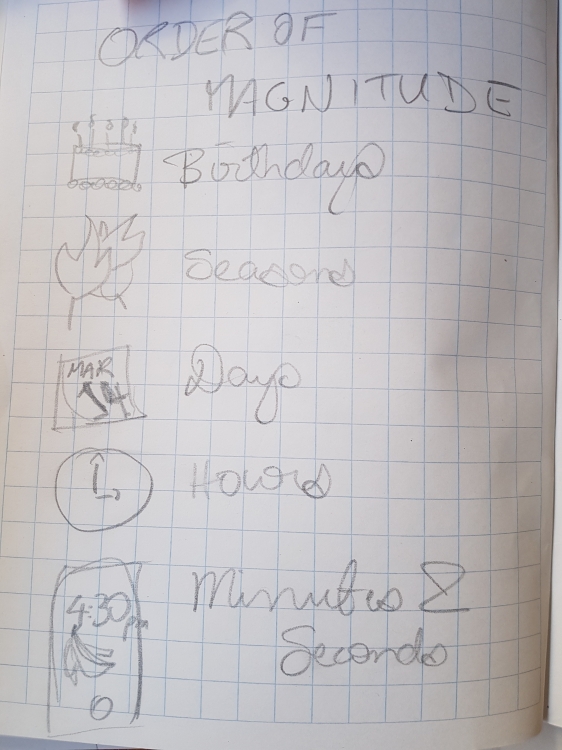 ORDER OF
MAGNITUDE
Birthdays
Seasons
MAR
14
Days
Hours
4:30pm
Minutes &
Seconds